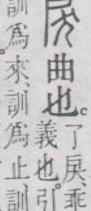 曲也。
了戾、乖
義也。引
訓爲來、訓爲止、訓